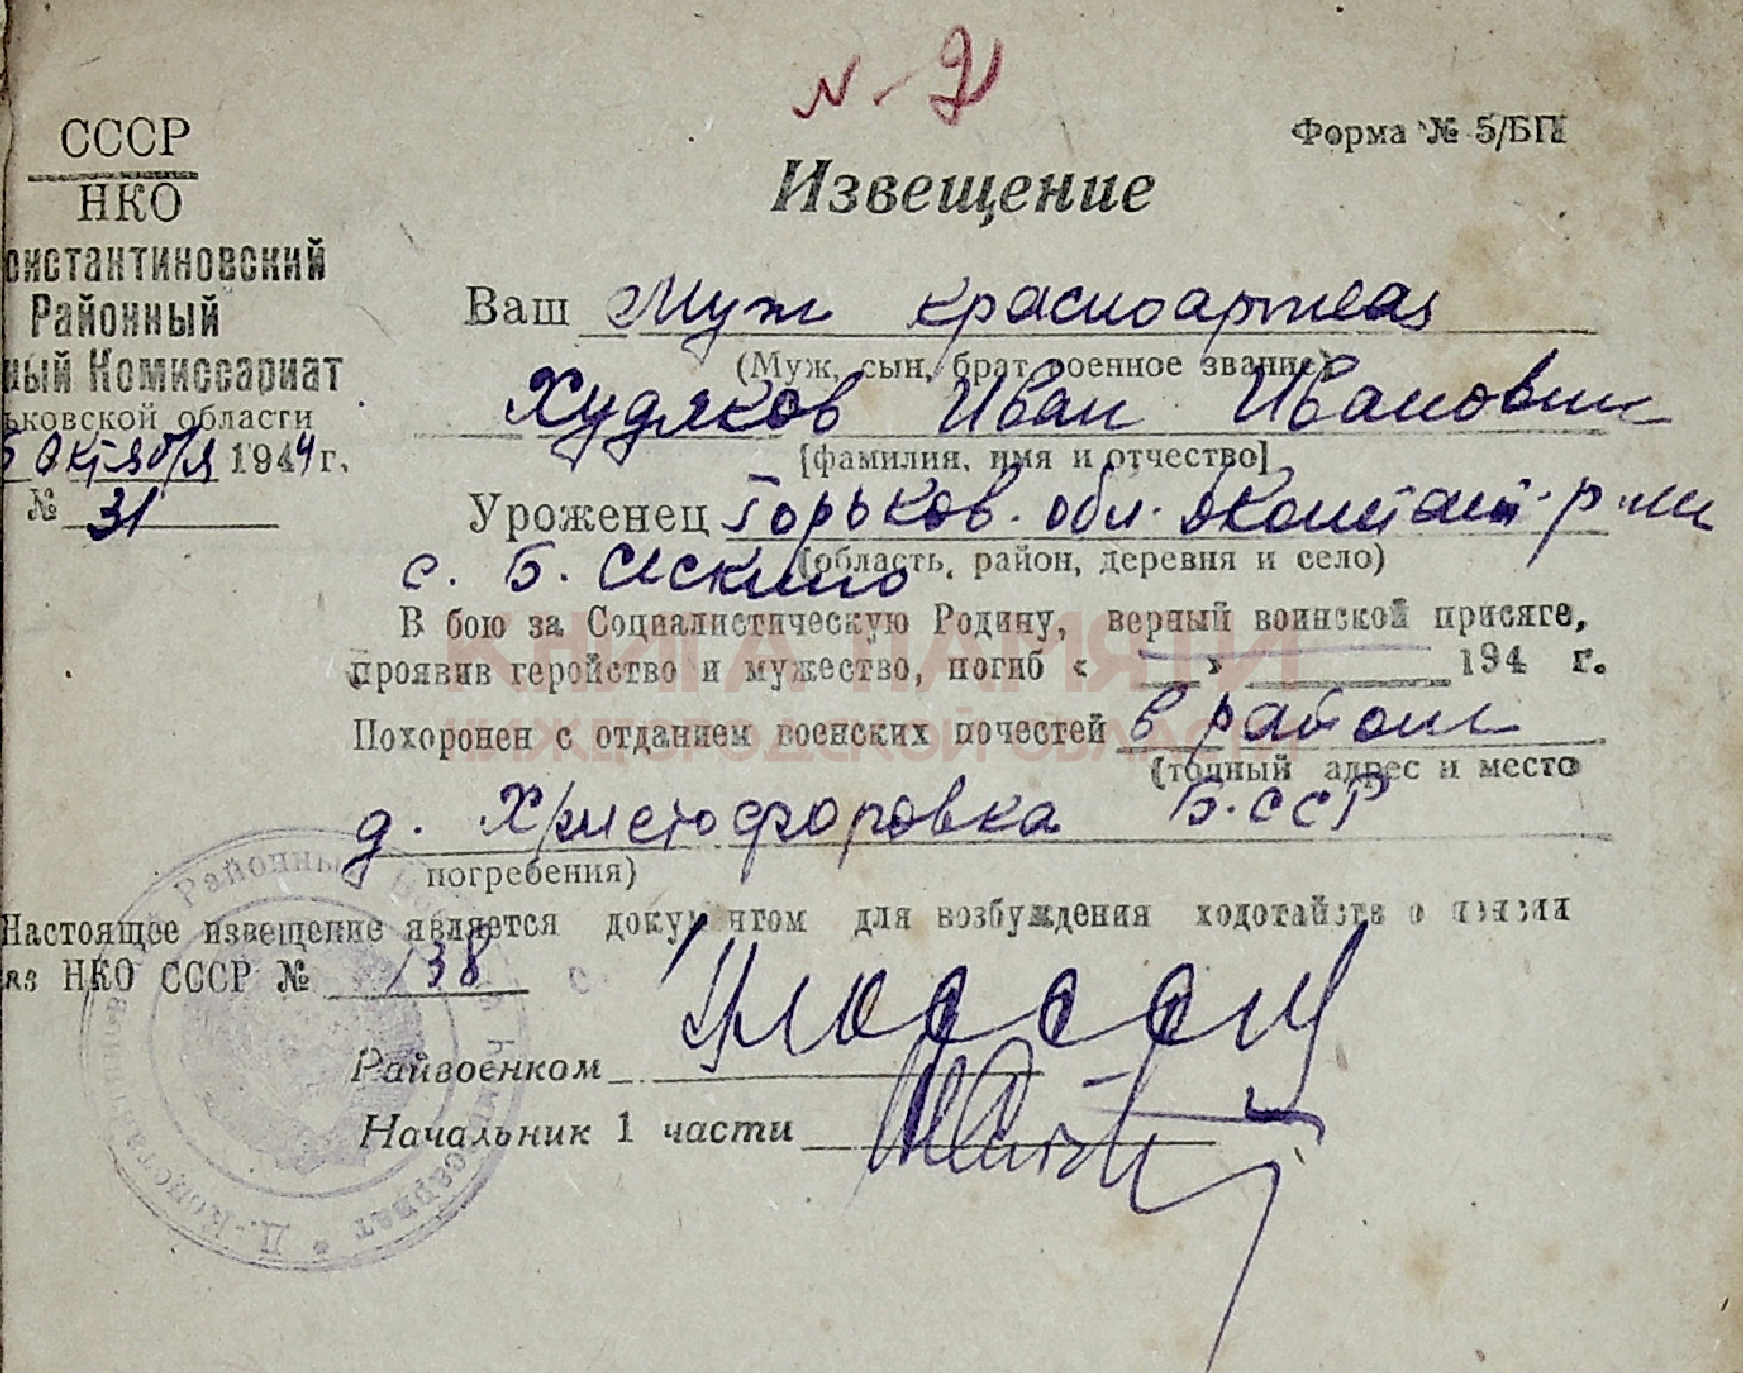 N-2
СССР
НКО
онстантиновский
Районный
ный Комиссариат
ьковской области
5 Октября 1944 г.
№ 31
Форма № 5/БП
Извещение
Ваш Муж красноармеец
(Муж, сын, брат, военное звание)
Худяков Иван Иванович
[фамилия, имя и отчество]
Уроженец Горьков. обл. Дконстант. р-на
(область, район, деревня и село)
с. Б. Сескино
В бою за Социалистическую Родину, верный воинской присяге,
проявив геройство и мужество, погиб « » 194 г.
КНИГА ПАМЯТИ
НИЖЕГОРОДСКОЙ ОБЛАСТИ
Похоронен с отданием воинских почестей в районе
(точный адрес и место
д. Христофоровка Б.ССР
погребения)
Настоящее извещение является документом для возбуждения ходотайств о пенсии
каз НКО СССР № 138
Райвоенком
Начальник 1 части